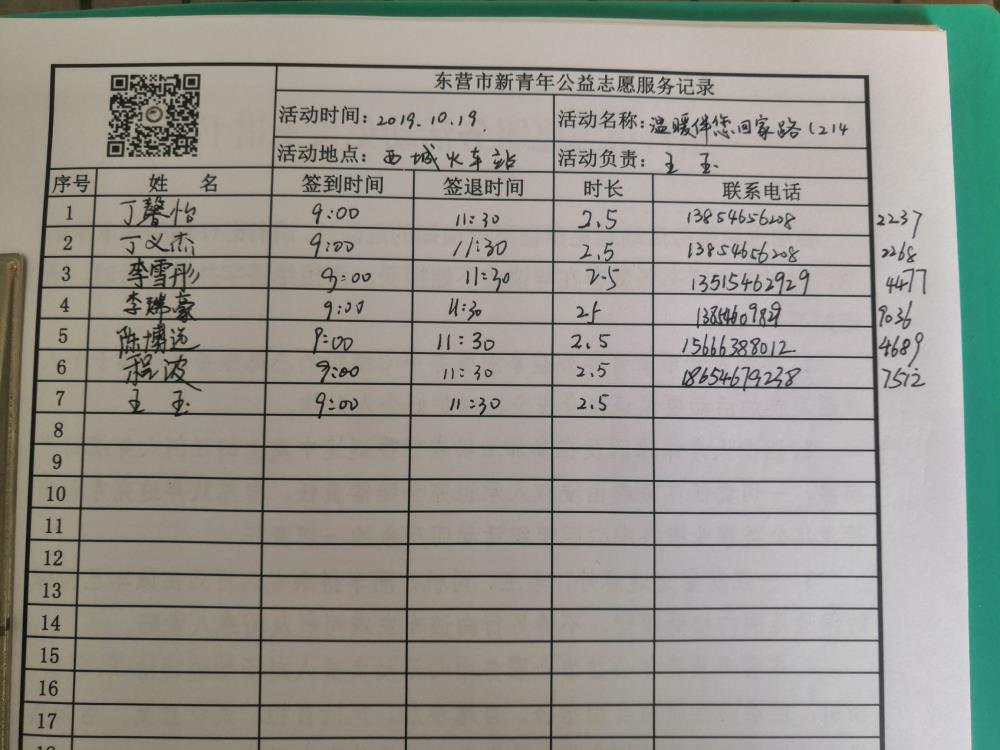 东营市新青年公益志愿服务记录
活动时间: 2019.10.19. 活动名称: 温暖伴您回家路(214
活动地点: 西城火车站 活动负责: 王玉
序号 姓 名 签到时间 签退时间 时长 联系电话
1 丁馨怡 9:00 11:30 2.5 13854656208 2237
2 丁义杰 9:00 11:30 2.5 13854656208 2268
3 李雪彤 9:00 11:30 2.5 13515462929 4477
4 李瑞豪 9:00 11:30 25 9036
5 陈博远 9:00 11:30 2.5 15666388012 4689
6 程波 9:00 11:30 2.5 18654679238 7572
7 王玉 9:00 11:30 2.5
8
9
10
11
12
13
14
15
16
17